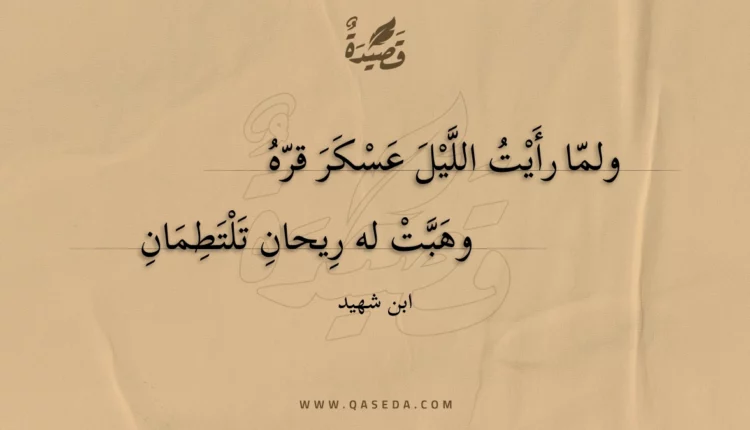 قَصِيْدَةٌ
ولمّا رأَيْتُ اللَّيْلَ عَسْكَرَ قرّهُ
وهَبَّتْ له رِيحانِ تَلْتَطِمَانِ
ابن شهيد
WWW.QASEDA.COM